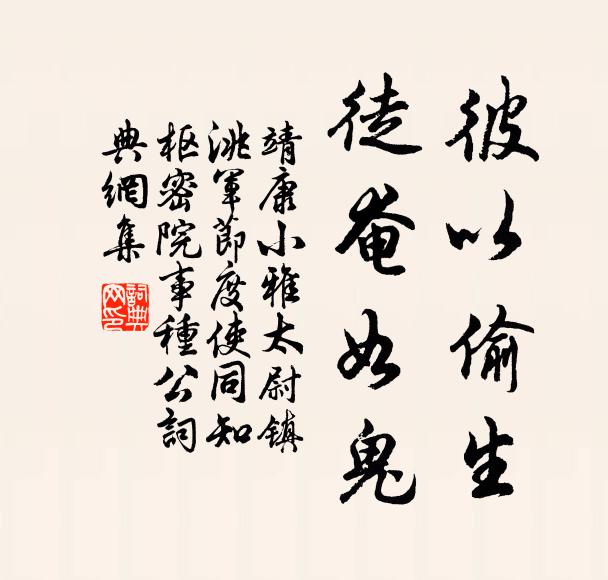 彼以偷生
徒奄如鬼
靖康小雅太尉镇
洮軍節度使同知
枢密院事種公詞
典網集
詞典网印